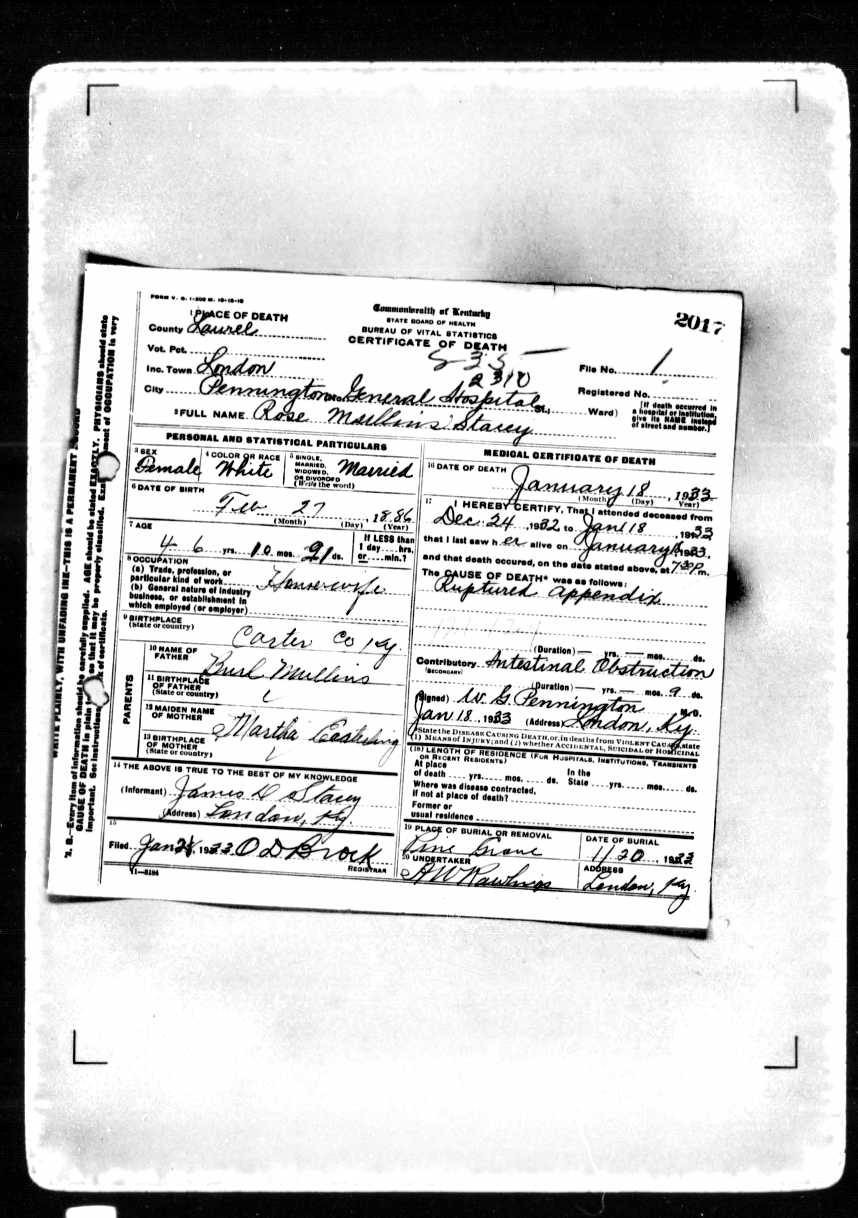 FORM V. S. 1-200 M. 10-16-18
Commonwealth of Kentucky
STATE BOARD OF HEALTH
BUREAU OF VITAL STATISTICS
CERTIFICATE OF DEATH
2017
1 PLACE OF DEATH
County Laurel
Vot. Pct.
Inc. Town London
City Pennington General Hospital St., Ward)
535
2310
File No. 1
Registered No.
[If death occurred in a hospital or institution, give its NAME instead of street and number.]
2 FULL NAME Rose Mullins Stacey
PERSONAL AND STATISTICAL PARTICULARS
3 SEX Female
4 COLOR OR RACE White
5 SINGLE, MARRIED, WIDOWED, OR DIVORCED (Write the word) Married
6 DATE OF BIRTH
Feb 27, 1886
(Month) (Day) (Year)
7 AGE
46 yrs. 10 mos. 21 ds.
If LESS than 1 day....hrs. or....min.?
8 OCCUPATION
(a) Trade, profession, or particular kind of work
(b) General nature of industry business, or establishment in which employed (or employer)
Housewife
9 BIRTHPLACE
(State or country)
Carter Co Ky
PARENTS
10 NAME OF FATHER Burl Mullins
11 BIRTHPLACE OF FATHER (State or country)
12 MAIDEN NAME OF MOTHER Martha
13 BIRTHPLACE OF MOTHER (State or country)
14 THE ABOVE IS TRUE TO THE BEST OF MY KNOWLEDGE
(Informant) James D Stacey
(Address) London, Ky
15
Filed Jan 21, 1933 O D Brock
REGISTRAR
11—3184
MEDICAL CERTIFICATE OF DEATH
16 DATE OF DEATH
January 18, 1933
(Month) (Day) Year)
17 I HEREBY CERTIFY, That I attended deceased from
Dec. 24 1932 to Jan 18, 1933
that I last saw her alive on January 1933,
and that death occured, on the date stated above, at 7:30 P m.
The CAUSE OF DEATH* was as follows:
Ruptured appendix
(Duration) yrs. mos. ds.
Contributory Intestinal Obstruction
(SECONDARY)
(Duration) yrs. mos. 9 ds.
(Signed) W. G. Pennington M.D.
Jan 18, 1933 (Address) London, Ky.
*State the DISEASE CAUSING DEATH, or, in deaths from VIOLENT CAUSES, state (1) MEANS OF INJURY; and (2) whether ACCIDENTAL, SUICIDAL OR HOMICIDAL
(18) LENGTH OF RESIDENCE (FOR HOSPITALS, INSTITUTIONS, TRANSIENTS OR RECENT RESIDENTS)
At place of death ..... yrs. ..... mos. ..... ds. In the State .... yrs. ..... mos. ..... ds.
Where was disease contracted, if not at place of death?
Former or usual residence
19 PLACE OF BURIAL OR REMOVAL
Pine Grove
DATE OF BURIAL
1/20, 1933
20 UNDERTAKER
A W Rawlings
ADDRESS
London, Ky.
WRITE PLAINLY, WITH UNFADING INK—THIS IS A PERMANENT RECORD
N. B.—Every item of information should be carefully supplied. AGE should be stated EXACTLY. PHYSICIANS should state
CAUSE OF DEATH in plain so that it may be properly classified. statement of OCCUPATION is very
important. See instructions of certificate.